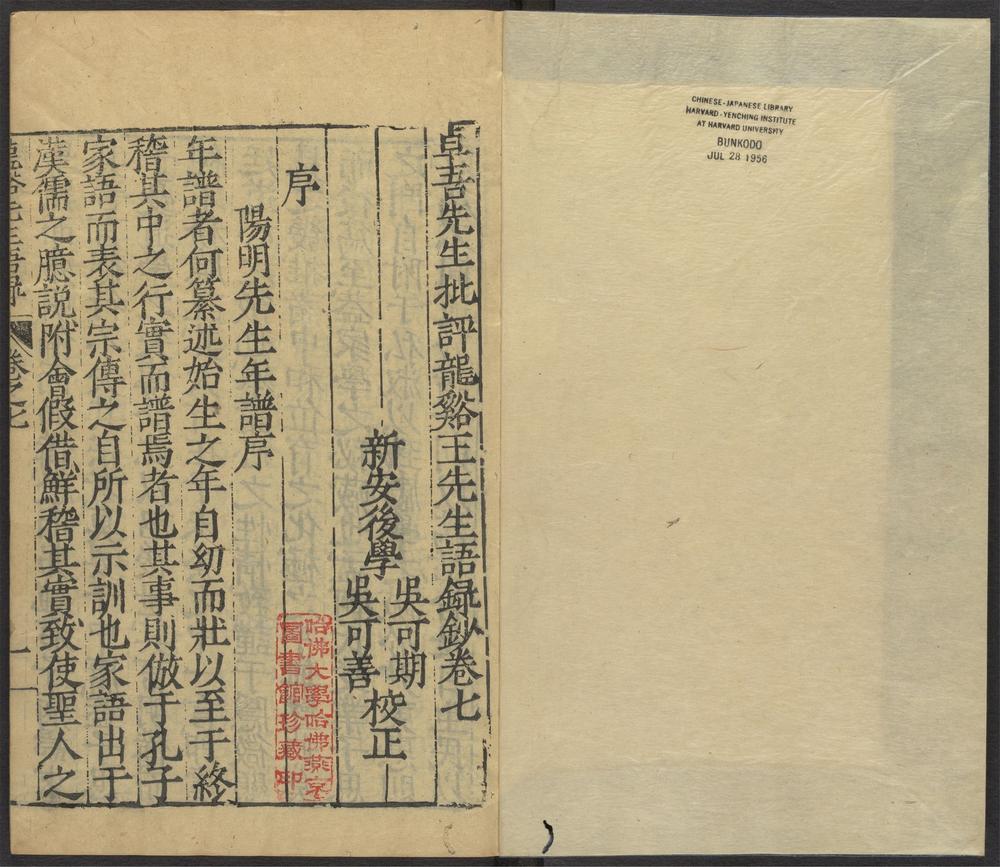 CHINESE-JAPANESE LIBRARY
HARVARD-YENCHING INSTITUTE
AT HARVARD UNIVERSITY
BUNKODO
JUL 28 1956
卓吾先生批評龍谿王先生語録鈔卷七
新安後學 吳可期 吳可善 校正
序
陽明先生年譜序
年譜者何纂述始生之年自幼而壯以至于終
稽其中之行實而譜焉者也其事則倣于孔子
家語而表其宗傳之自所以示訓也家語出于
漢儒之臆説附會假借鮮稽其實致使聖人之
龍谿先生語録 卷之七 一
哈佛大學哈佛燕京
圖書館珍藏印